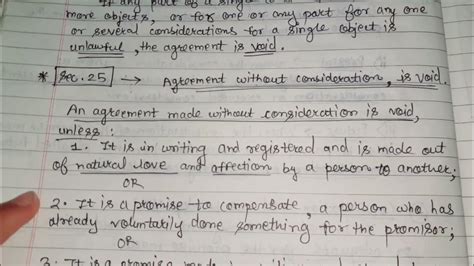 If any part of a single
more objects, or for one or any part for any one
or several considerations for a single object is
unlawful, the agreement is void.
* Sec. 25 → Agreement without consideration, is void.
An agreement made without consideration is void,
unless :
1. It is in writing and registered and is made out
of natural love and affection by a person to another;
OR
2. It is a promise to compensate, a person who has
already voluntarily done something for the promisor;
OR
3. It is a promise made in